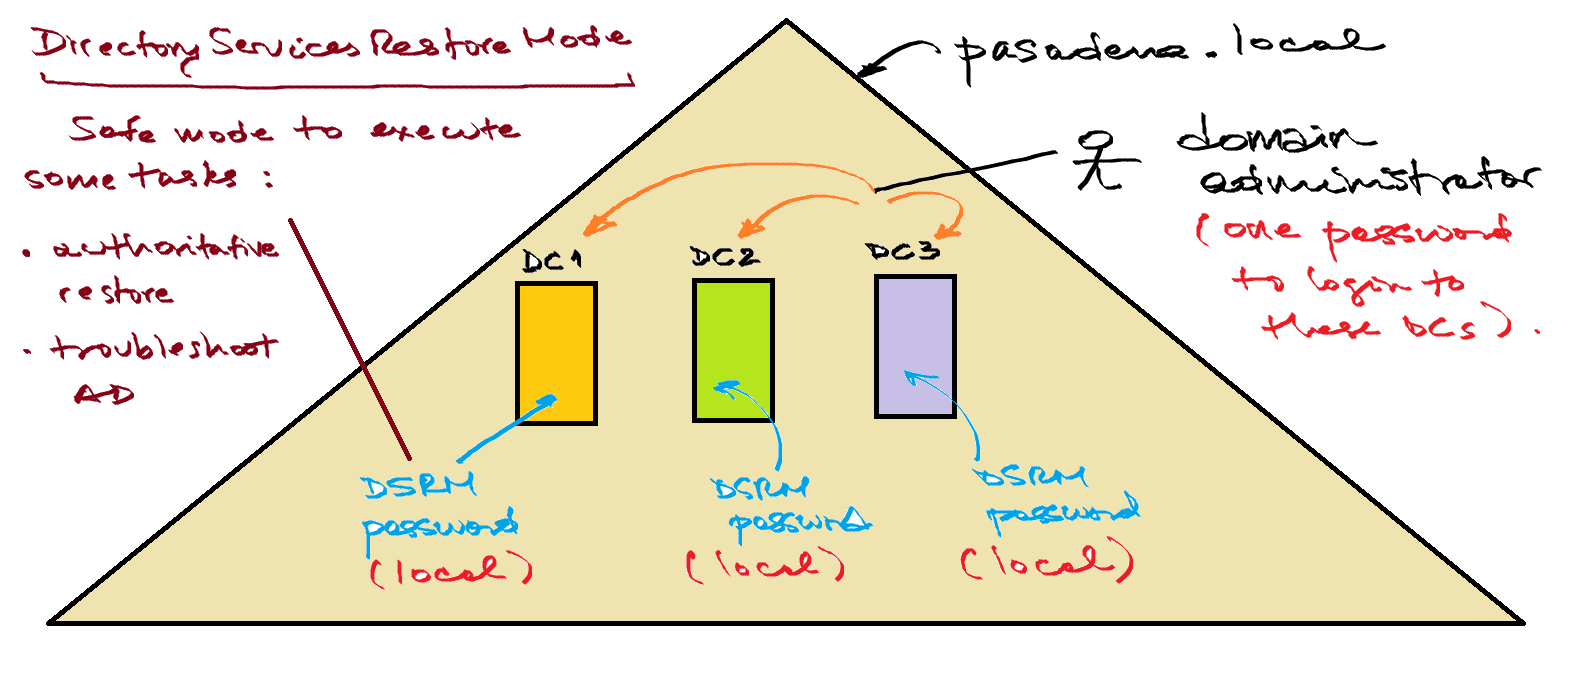 Directory Services Restore Mode
Safe mode to execute
some tasks :
• authoritative
restore
• troubleshoot
AD
pasadena.local
domain
administrator
(one password
to login to
these DCs).
DC1
DC2
DC3
DSRM
password
(local)
DSRM
password
(local)
DSRM
password
(local)